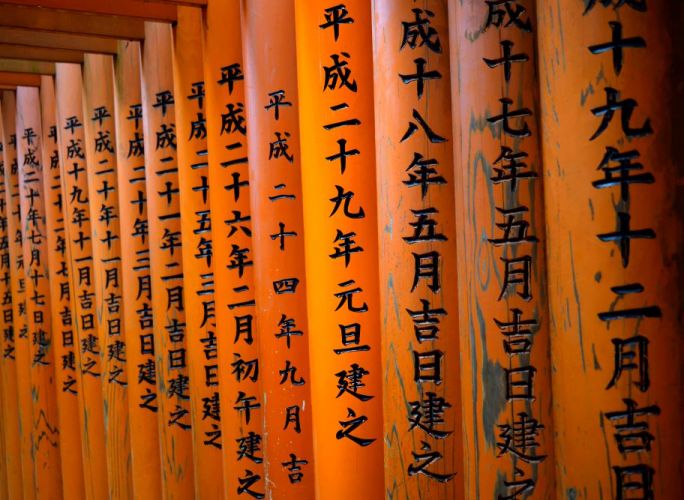 成十九年十二月吉日
成十七年五月吉日建之
成十八年五月吉日建之
平成二十九年元旦建之
平成二十四年九月吉
平成二十六年二月初午建之
平成二十五年三月吉日建之
平成二十一年二月吉日建之
平成二十年三月吉日建之
平成二十年十一月吉日建之
平成十九年十一月吉日建之
七月吉日建之
平成二十年七月十七日建之
年元旦建之
年五月十五日建之